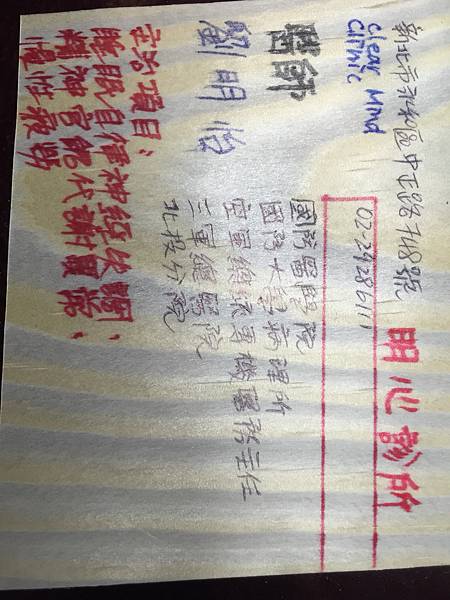 新北市永和區中正路748號
明心診所
clear Mnd
clinic
02 29286111
醫師
劉明怡
國防醫學院
國防大學病理所
空軍總司令專機醫務主任
三軍總醫院
北投分院
治項目:律神經失調、
睡眠官能代謝
精神
慢性